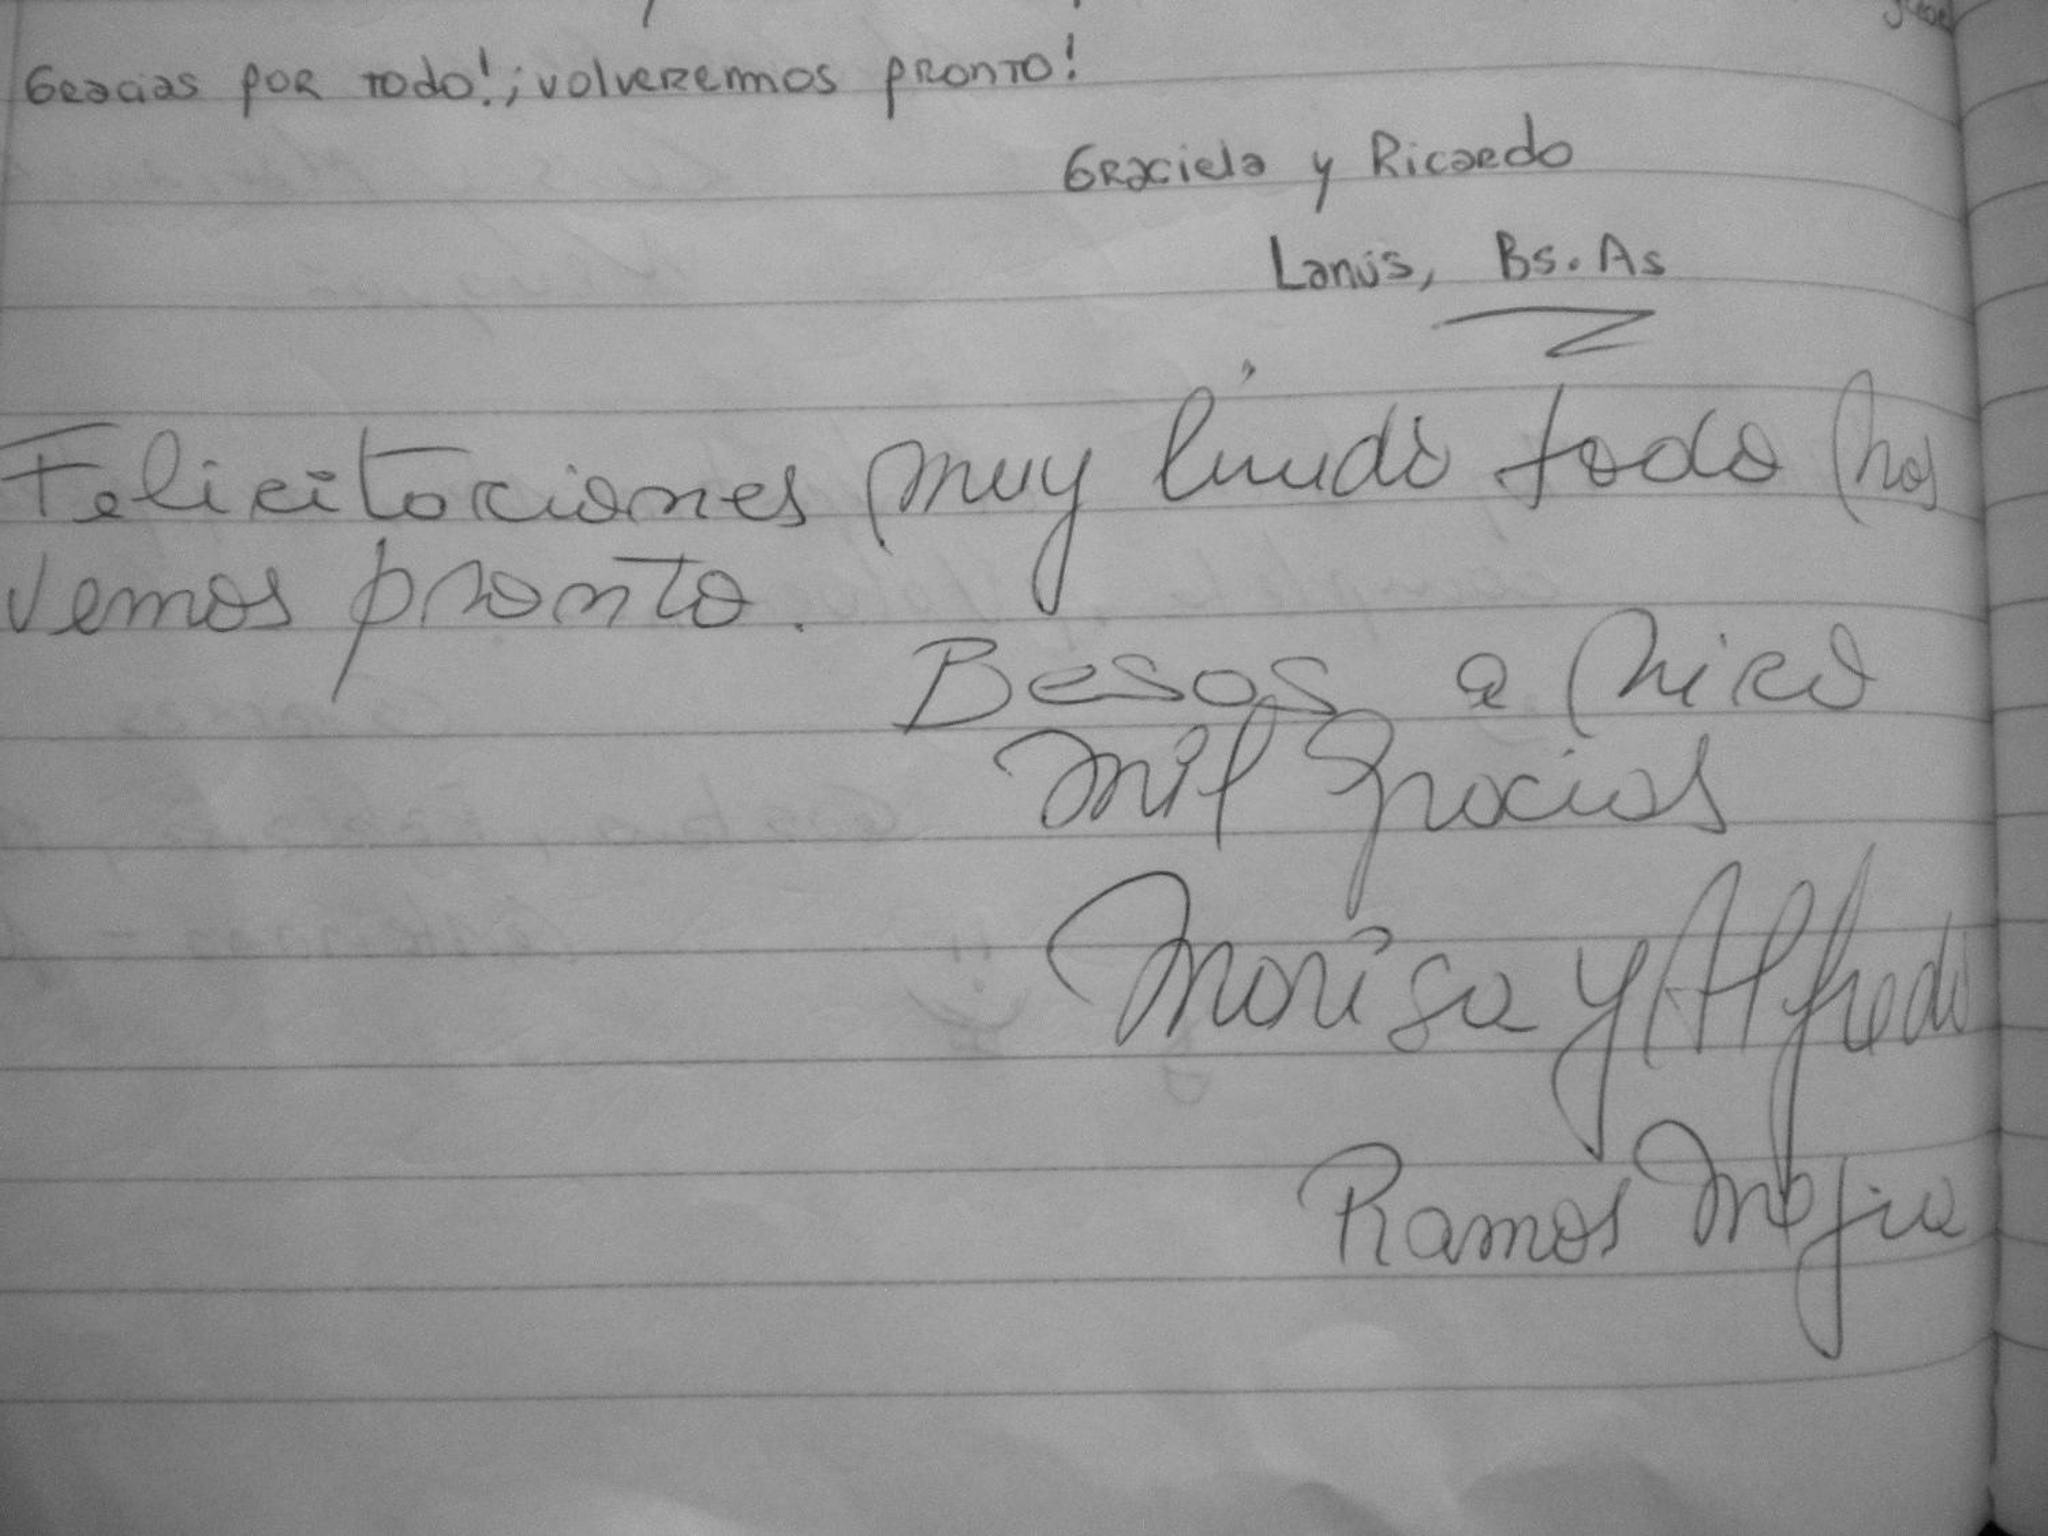 Gracias por todo! ¡volveremos pronto!
Graciela y Ricardo
Lanús, Bs. As
Felicitaciones muy lindo todo nos
vemos pronto.
Besos a Nico
mil gracias
Marisa y Alfredo
Ramos Mejia